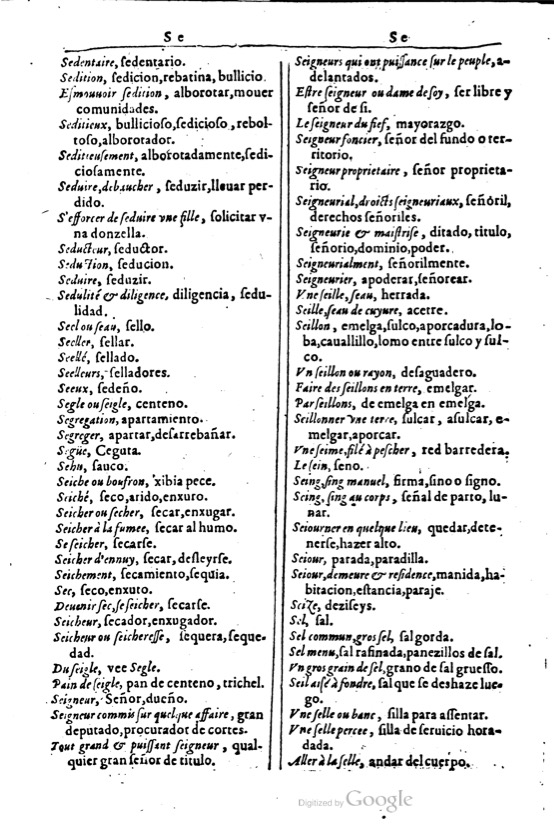 S e
Sedentaire, ſedentario.
Sedition, ſedicion, rebatina, bullicio.
Eſmouuoir ſedition, alborotar, mouer
comunidades.
Seditieux, bullicioſo, ſedicioſo, rebol-
toſo, alborotador.
Seditieuſement, alborotadamente, ſedi-
cioſamente.
Seduire, debaucher, ſeduzir, lleuar per-
dido.
S'efforcer de ſeduire vne fille, ſolicitar v-
na donzella.
Seducteur, ſeductor.
Seduction, ſeducion.
Seduire, ſeduzir.
Sedulité & diligence, diligencia, ſedu-
lidad.
Seel ou ſeau, ſello.
Seeller, ſellar.
Seellé, ſellado.
Seelleurs, ſelladores.
Seeux, ſedeño.
Segle ou ſeigle, centeno.
Segregation, apartamiento.
Segreger, apartar, deſarrebañar.
Següe, Ceguta.
Sehu, ſauco.
Seiche ou bouſron, xibia pece.
Seiché, ſeco, arido, enxuro.
Seicher ou ſecher, ſecar, enxugar.
Seicher à la fumee, ſecar al humo.
Se ſeicher, ſecarſe.
Seicher d'ennuy, ſecar, deſleyrſe.
Seichement, ſecamiento, ſequia.
Sec, ſeco, enxuto.
Deuenir ſec, ſe ſeicher, ſecarſe.
Seicheur, ſecador, enxugador.
Seicheur ou ſeichereſſe, ſequera, ſeque-
dad.
Du ſeigle, vee Segle.
Pain de ſeigle, pan de centeno, trichel.
Seigneur, Señor, dueño.
Seigneur commis ſur quelque affaire, gran
deputado, procurador de cortes.
Tout grand & puiſſant ſeigneur, qual-
quier gran ſeñor de titulo.
S e
Seigneurs qui ont puiſſance ſur le peuple, a-
delantados.
Eſtre ſeigneur ou dame de ſoy, ſer libre y
ſeñor de ſi.
Le ſeigneur du fief, mayorazgo.
Seigneur foncier, ſeñor del fundo o ter-
ritorio.
Seigneur proprietaire, ſeñor proprieta-
rio.
Seigneurial, droicts ſeigneuriaux, ſeñoril,
derechos ſeñoriles.
Seigneurie & maiſtriſe, ditado, titulo,
ſeñorio, dominio, poder.
Seigneurialment, ſeñorilmente.
Seigneurier, apoderar, ſeñorear.
Vne ſeille, ſeau, herrada.
Seille, ſeau de cuyure, acetre.
Seillon, emelga, ſulco, aporcadura, lo-
ba, cauallillo, lomo entre ſulco y ſul-
co.
Vn ſeillon ou rayon, deſaguadero.
Faire des ſeillons en terre, emelgar.
Par ſeillons, de emelga en emelga.
Seillonner vne terre, ſulcar, aſulcar, e-
melgar, aporcar.
Vne ſeime, filé à peſcher, red barredera.
Le ſein, ſeno.
Seing, ſing manuel, firma, ſino o ſigno.
Seing, ſing au corps, ſeñal de parto, lu-
nar.
Seiourner en quelque lieu, quedar, dete-
nerſe, hazer alto.
Seiour, parada, paradilla.
Seiour, demeure & reſidence, manida, ha-
bitacion, eſtancia, paraje.
Seize, deziſeys.
Sel, ſal.
Sel commun, gros ſel, ſal gorda.
Sel menu, ſal rafinada, panezillos de ſal.
Vn gros grain de ſel, grano de ſal grueſſo.
Seil aiſé à fondre, ſal que ſe deshaze lue-
go.
Vne ſelle ou banc, ſilla para aſſentar.
Vne ſelle percee, ſilla de ſeruicio hora-
dada.
Aller à la ſelle, andar del cuerpo.
Digitized by Google